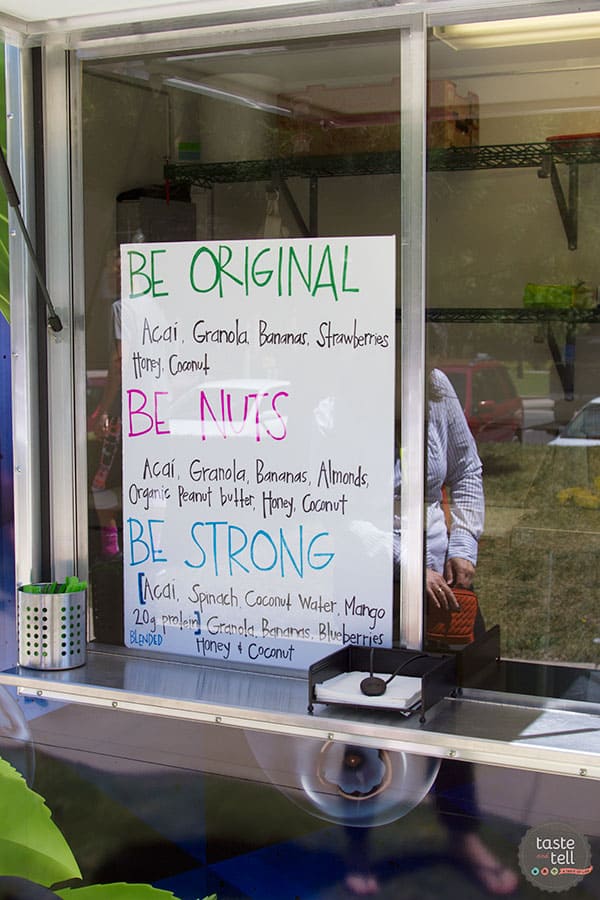 BE ORIGINAL
Acaí, Granola, Bananas, Strawberries
Honey, Coconut
BE NUTS
Acaí, Granola, Bananas, Almonds,
Organic Peanut butter, Honey, Coconut
BE STRONG
[Acaí, Spinach, Coconut Water, Mango
20g protein] Granola, Bananas, Blueberries
BLENDED Honey & Coconut
taste
and
tell